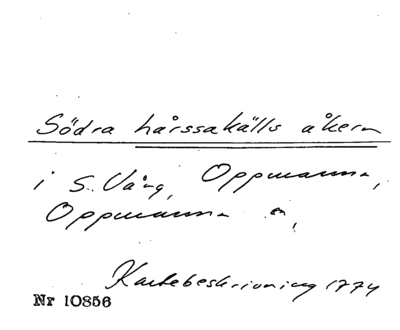 Södra hårssakälls åkern
i S. Vång, Oppmanna,
Oppmanna
Kartebeskrivning 1774
Nr 10856